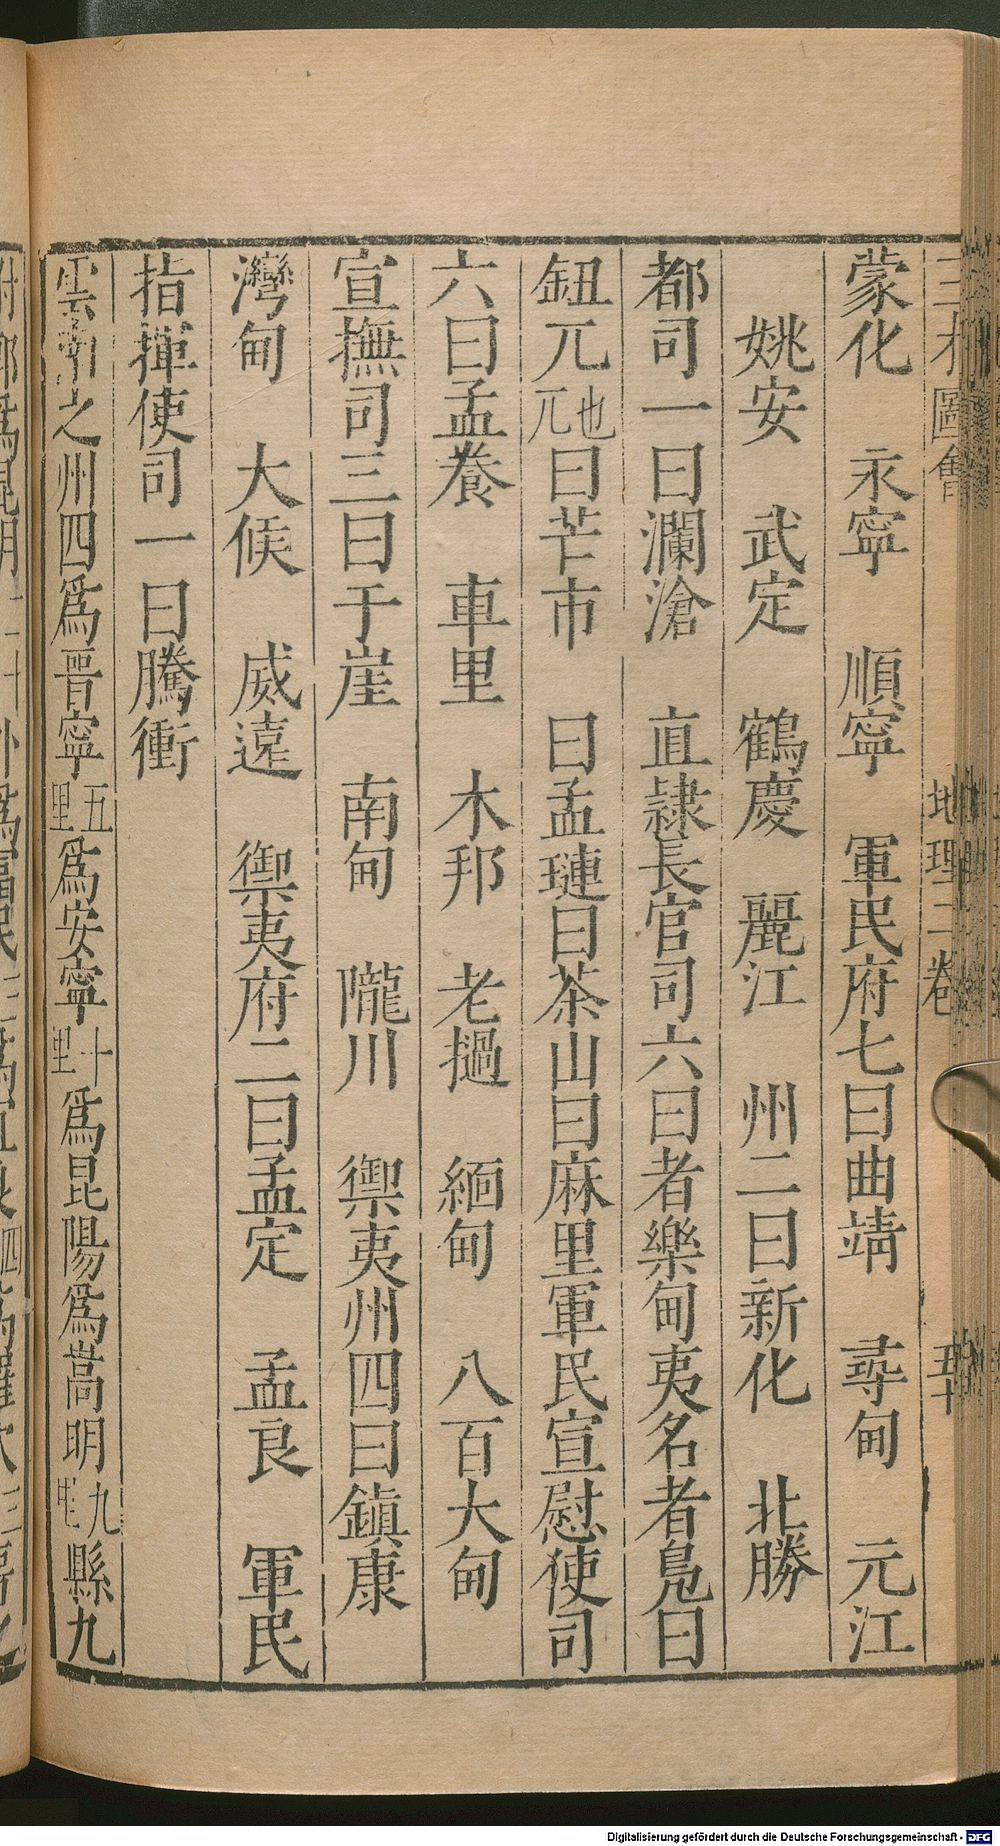 三才圖會 地理二卷
蒙化 永寧 順寧 軍民府七曰曲靖 尋甸 元江
姚安 武定 鶴慶 麗江 州二曰新化 北勝
都司一曰瀾滄 直隷長官司六曰者樂甸夷名者鳧曰
鈕兀兀也曰芒市 曰孟璉曰茶山曰麻里軍民宣慰使司
六曰孟養 車里 木邦 老撾 緬甸 八百大甸
宣撫司三曰于崖 南甸 隴川 禦夷州四曰鎮康
灣甸 大候 威遠 禦夷府二曰孟定 孟良 軍民
指揮使司一曰騰衝
雲南之州四爲晉寧五里爲安寧十里爲昆陽爲嵩明九里縣九
Digitalisierung gefördert durch die Deutsche Forschungsgemeinschaft - DFG